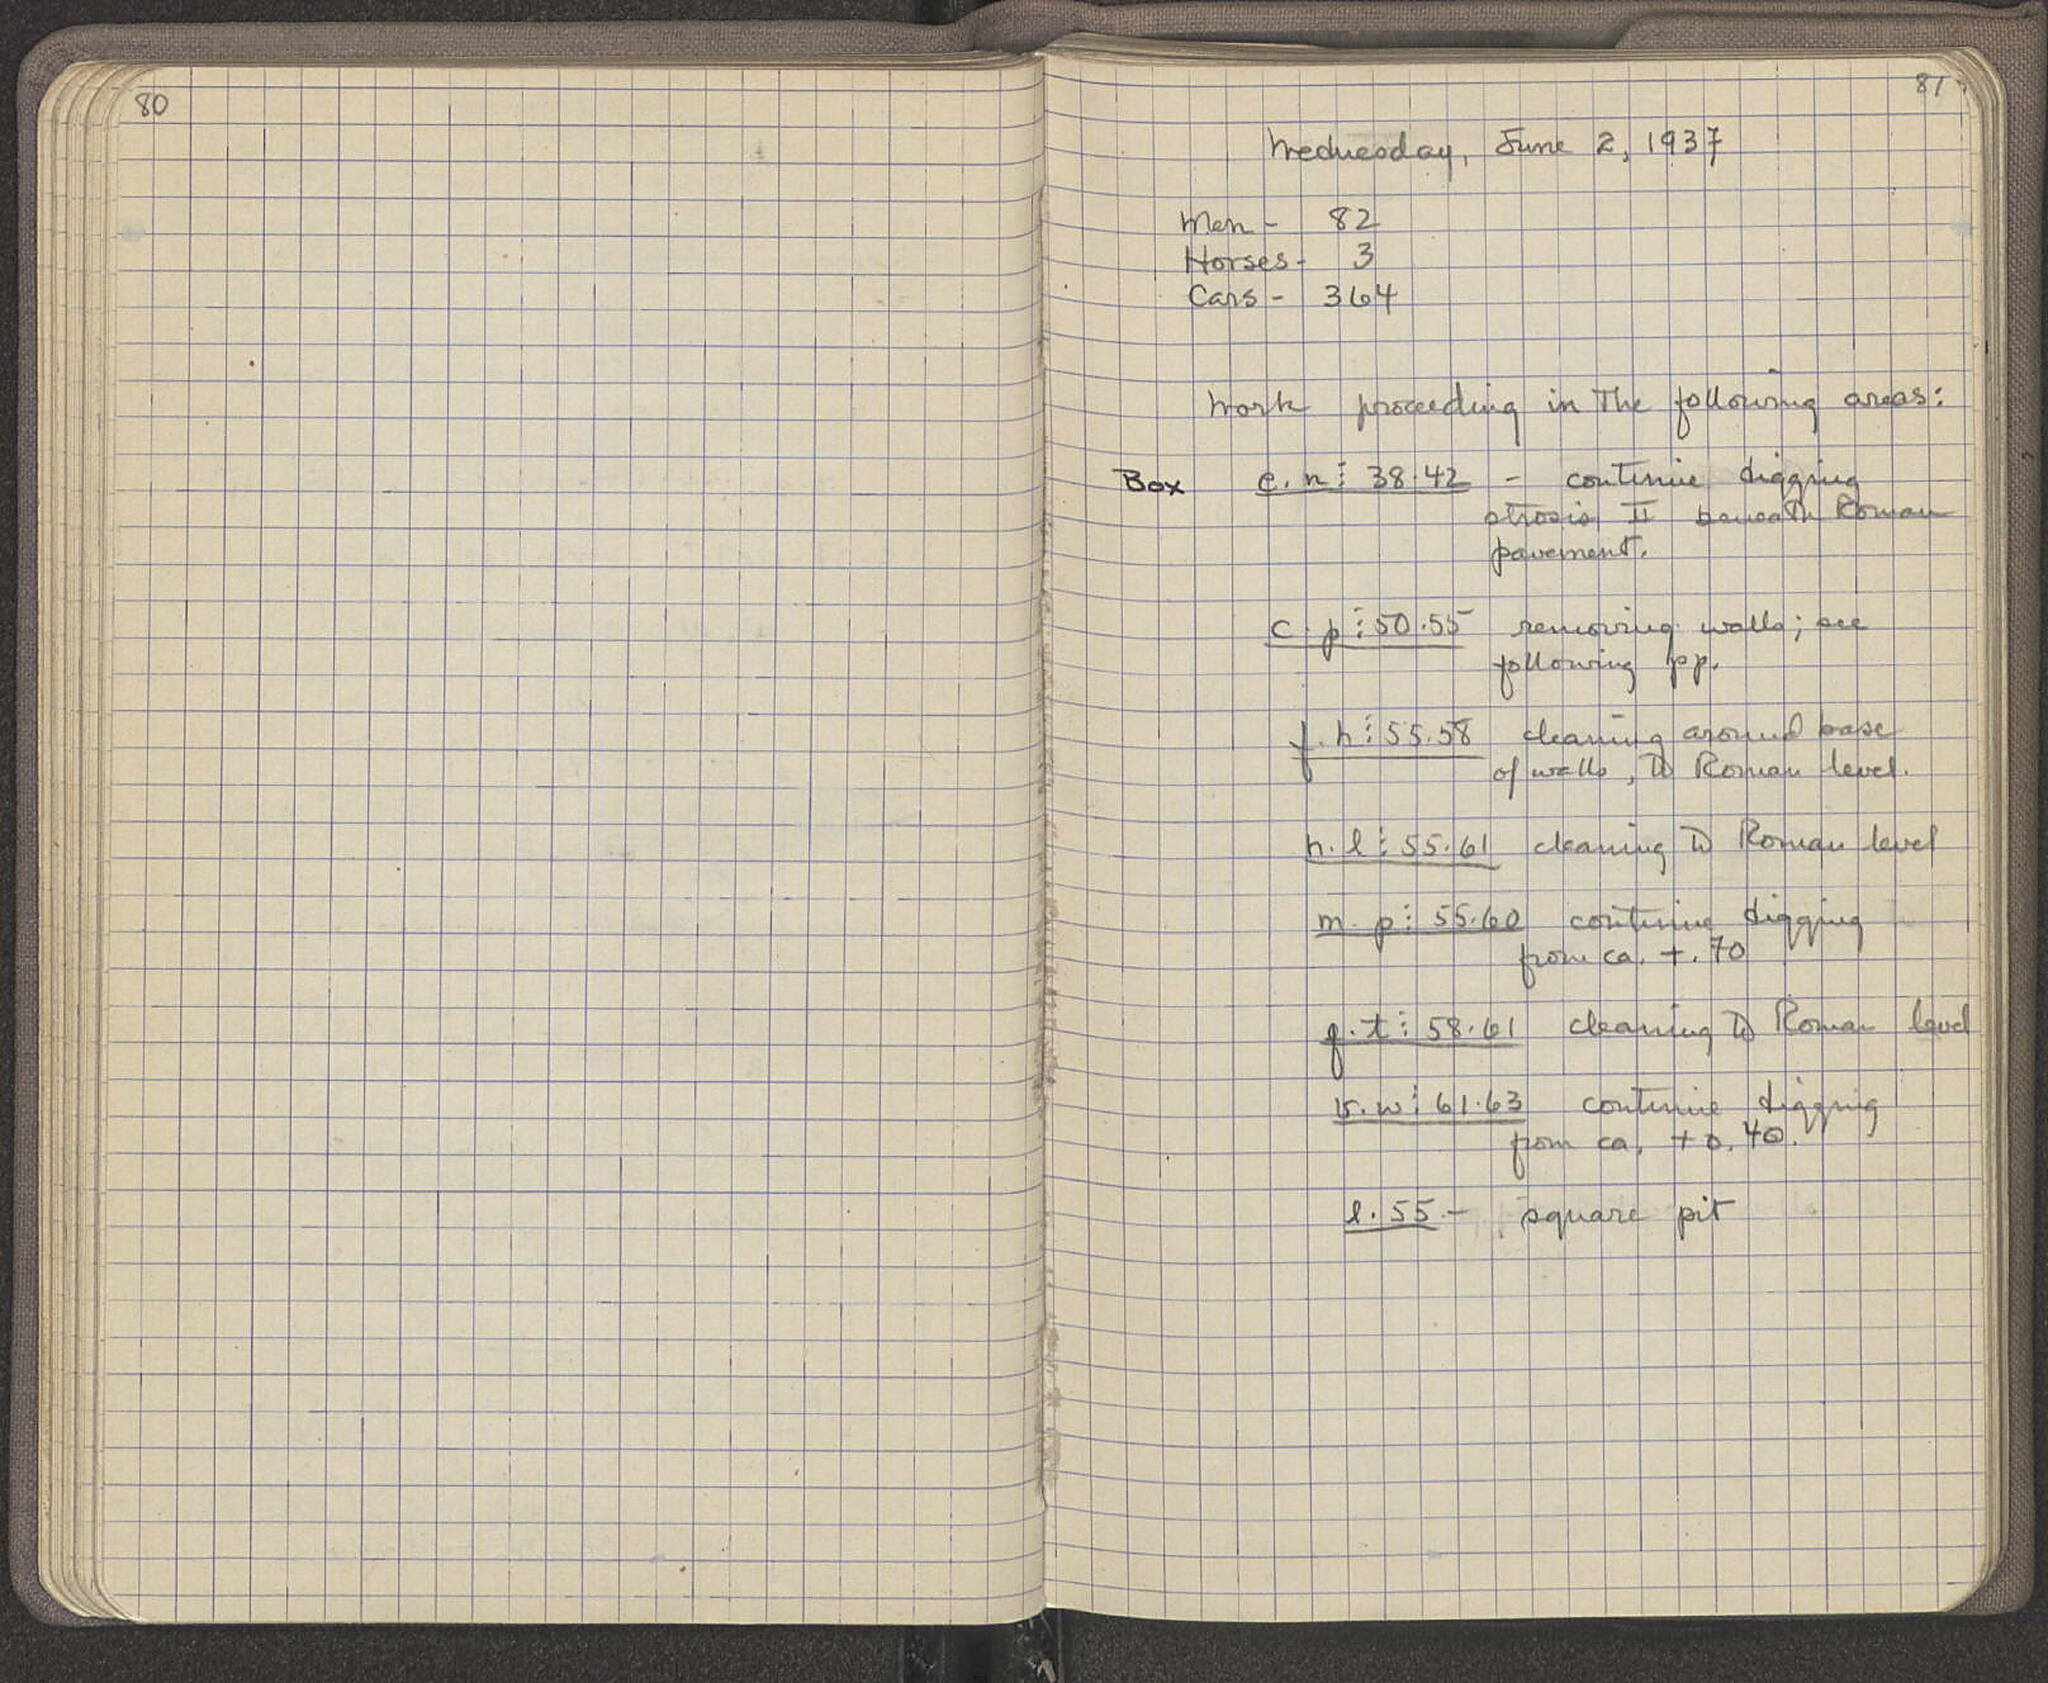 80
81
Wednesday, June 2, 1937
Men - 82
Horses - 3
Cars - 364
Work proceeding in the following areas:
Box e. n ⋮ 38.42 - continue digging
strosis II beneath Roman
pavement.
c. p ⋮ 50.55 removing walls; see
following pp.
f. h ⋮ 55.58 cleaning around base
of walls, to Roman level.
h. l ⋮ 55.61 cleaning to Roman level
m. p ⋮ 55.60 continue digging
from ca. +.70
q. t ⋮ 58.61 cleaning to Roman level
v. w ⋮ 61.63 continue digging
from ca. +0.40.
l. 55 - square pit